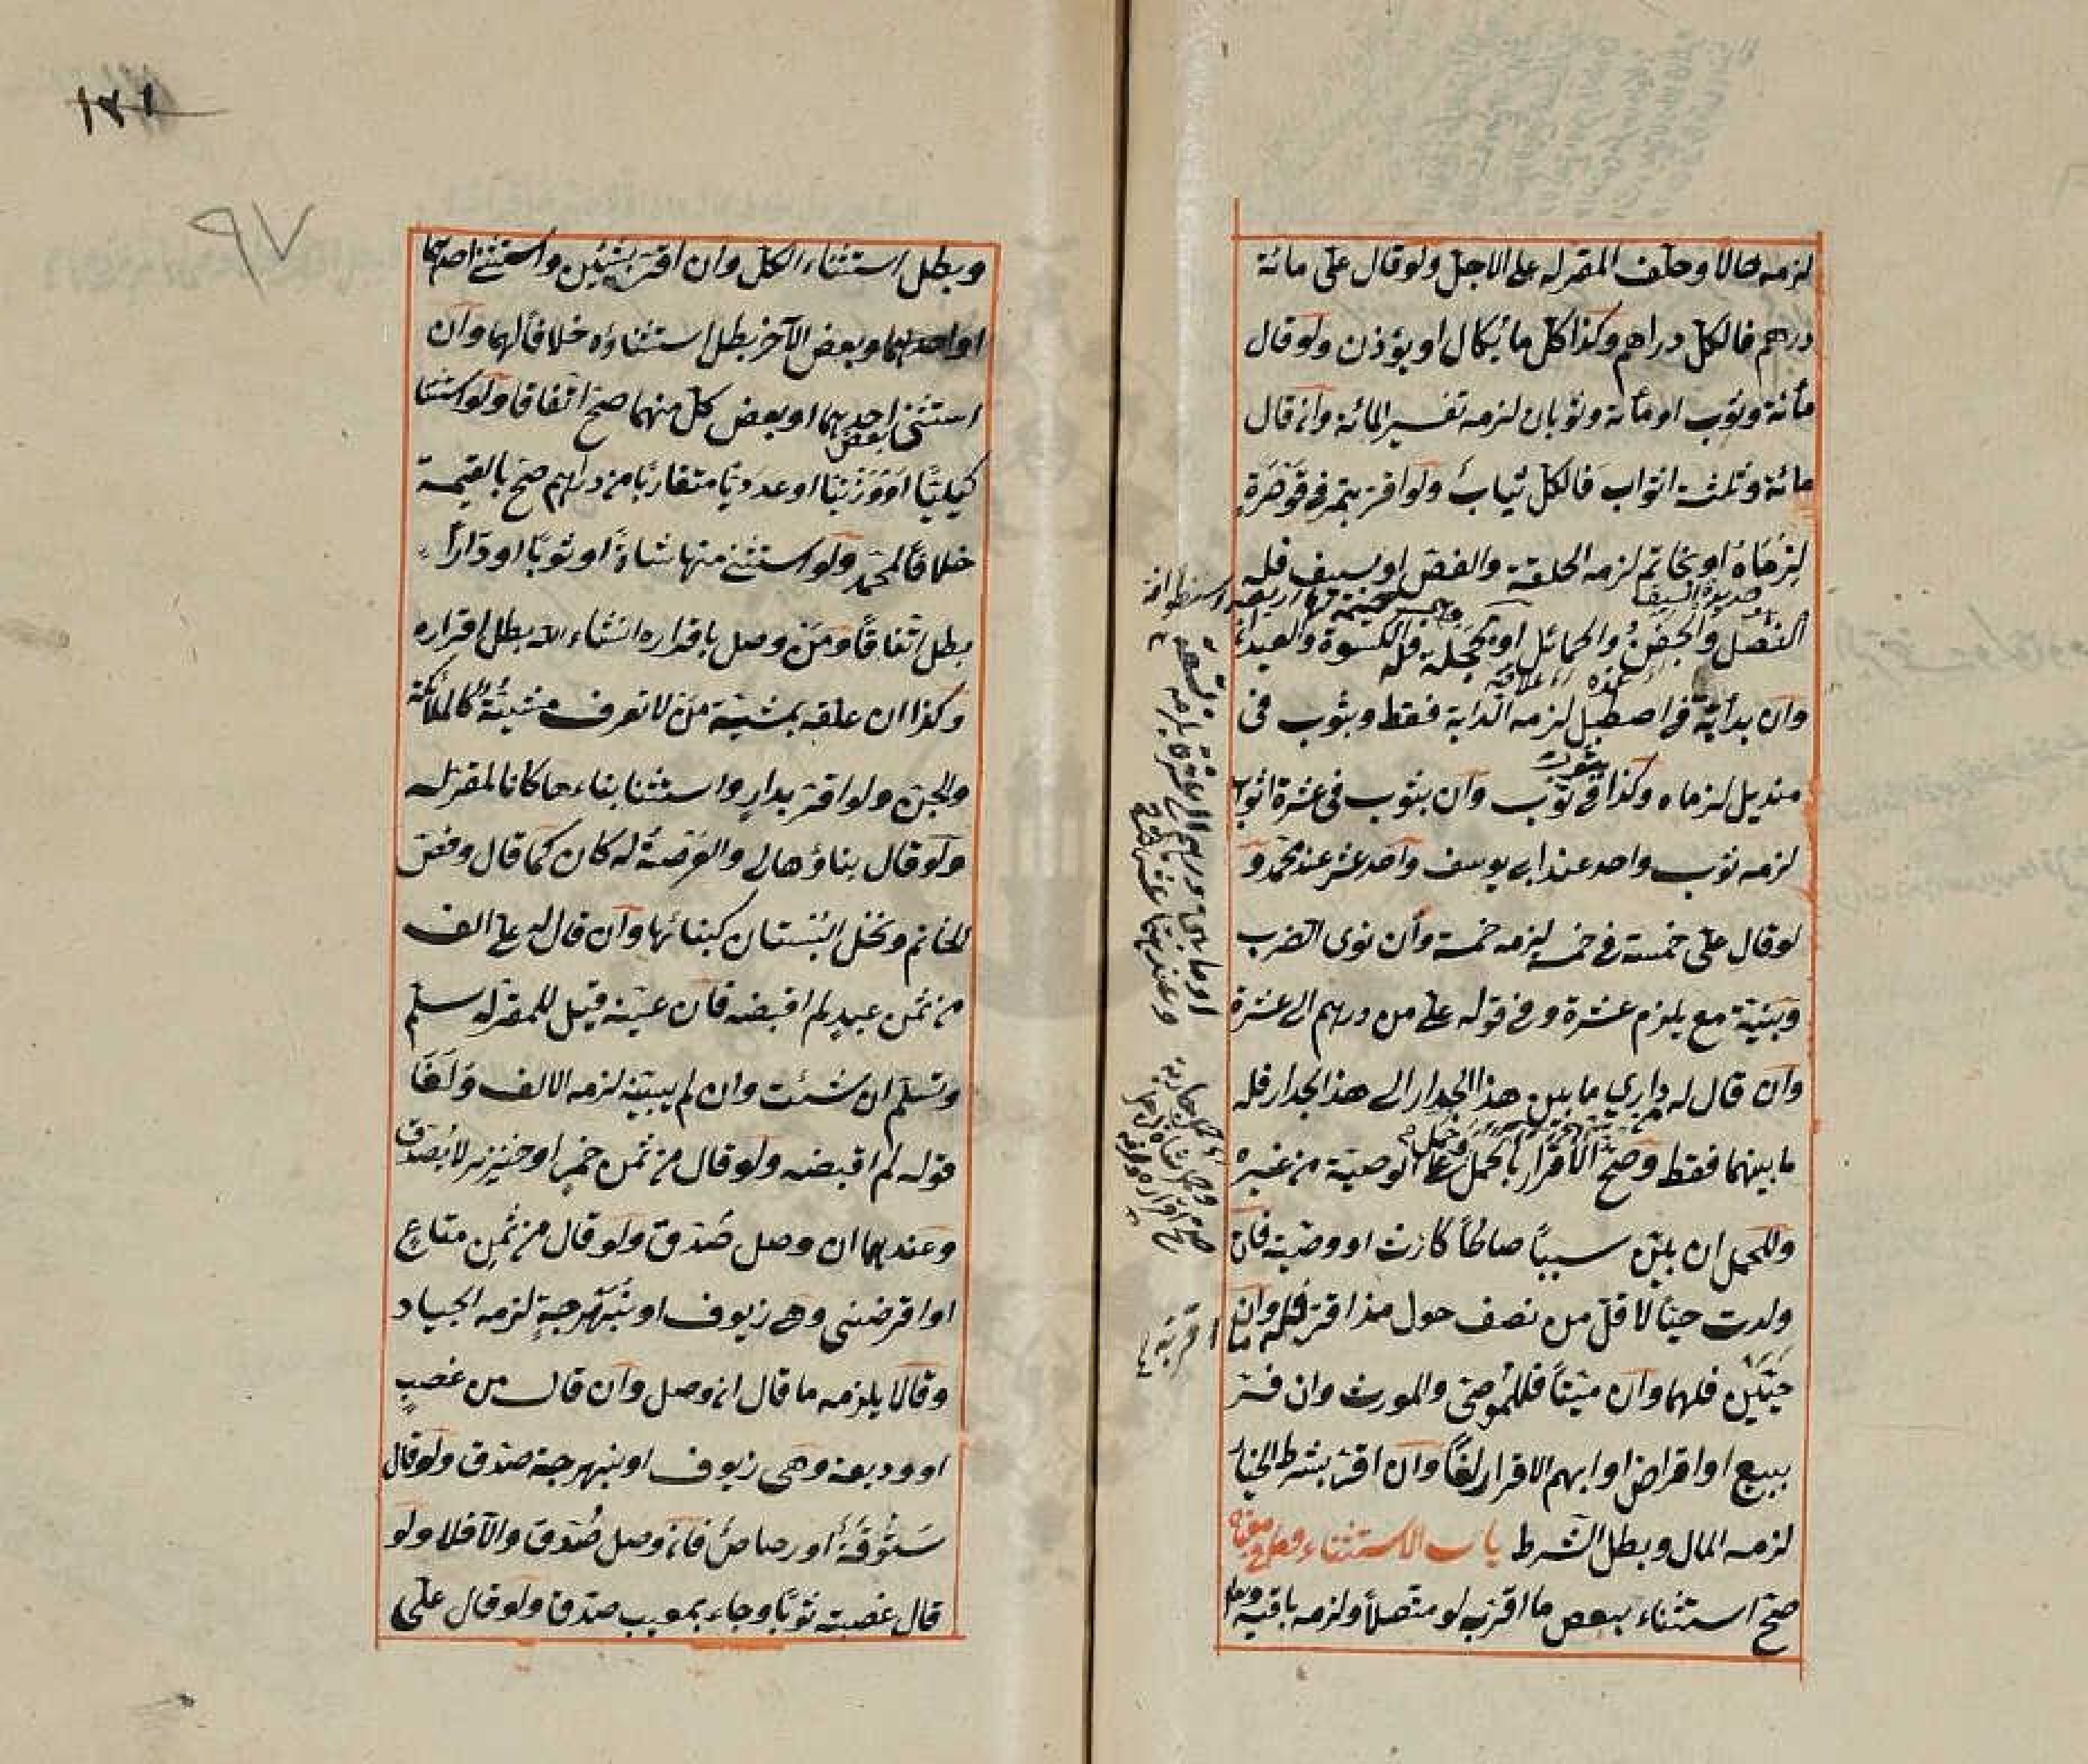 لزمه حالا وحلف المقر له على الاجل ولو قال على مائة
درهم فالكل دراهم وكذا كل ما يكال او يوزن ولو قال
مائة وثوب او مائة وثوبان لزمه تفسير المائة وان قال
مائة وثلثة اثواب فالكل ثياب ولو اقر بتمر في قوصرة
لزماه او بخاتم لزمه الحلقة والفص او بسيف فله
حديدة السيف
النصل والجفن والحمائل او بحجلة فله الكسوة والعيدان
وان بدابة في اصطبل لزمه الدابة فقط وبثوب في
منديل لزماه وكذا بثوب في ثوب وان بثوب في عشرة اثواب
لزمه ثوب واحد عند ابى يوسف واحد عشر عند محمد و
لو قال على خمسة في خمسة لزمه خمسة وان نوى الضرب
وبنية مع يلزم عشرة وفي قوله على من درهم الى عشرة
وان قال له داري ما بين هذا الجدار الى هذا الجدار فله
ما بينهما فقط وصح الاقرار بالحمل وحمل على الوصية من غيره
وللحمل ان بين سببا صالحا كارث او وصية فان
ولدت حيا لاقل من نصف حول مذ اقر فله وان
حيين فلهما وان ميتا فللموصى والمورث وان فسر
ببيع او اقراض او ابهم الاقرار لغا وان اقر بشرط الخيار
لزمه المال وبطل الشرط باب الاستثناء وما في معناه
صح استثناء بعض ما اقر به لو متصلا ولزمه باقيه
١٧١
وبطل استثناء الكل وان اقر بشيئين واستثنى احدهما
او احدهما وبعض الآخر بطل استثناؤه خلافا لهما وان
استثنى بعض احدهما او بعض كل منهما صح اتفاقا ولو استثنى
كيليا او وزنيا او عدديا متقاربا من دراهم صح بالقيمة
خلافا لمحمد ولو استثنى منها شاة او ثوبا او دارا
بطل اتفاقا ومن وصل باقراره انشاء الله بطل اقراره
وكذا ان علقه بمشية من لا تعرف مشيئته كالملائكة
والجن ولو اقر بدار واستثنا بناءها كانا للمقر له
ولو قال بناؤها لى والعرصة له كان كما قال وفص
الخاتم ونخل البستان كبنائها وان قال له على الف
من ثمن عبد لم اقبضه فان عينه قيل للمقر له سلم
وتسلم ان شئت وان لم يعينه لزمه الالف ولغا
قوله لم اقبضه ولو قال من ثمن خمر او خنزير لا يصدق
وعندهما ان وصل صدق ولو قال من ثمن متاع
او اقرضنى وهى زيوف او نبهرجة لزمه الجياد
وقالا يلزمه ما قال ان وصل وان قال من غصب
او وديعة وهى زيوف او نبهرجة صدق ولو قال
ستوقة او رصاص فان وصل صدق والا فلا ولو
قال غصبته ثوبا وجاء بمعيب صدق ولو قال على